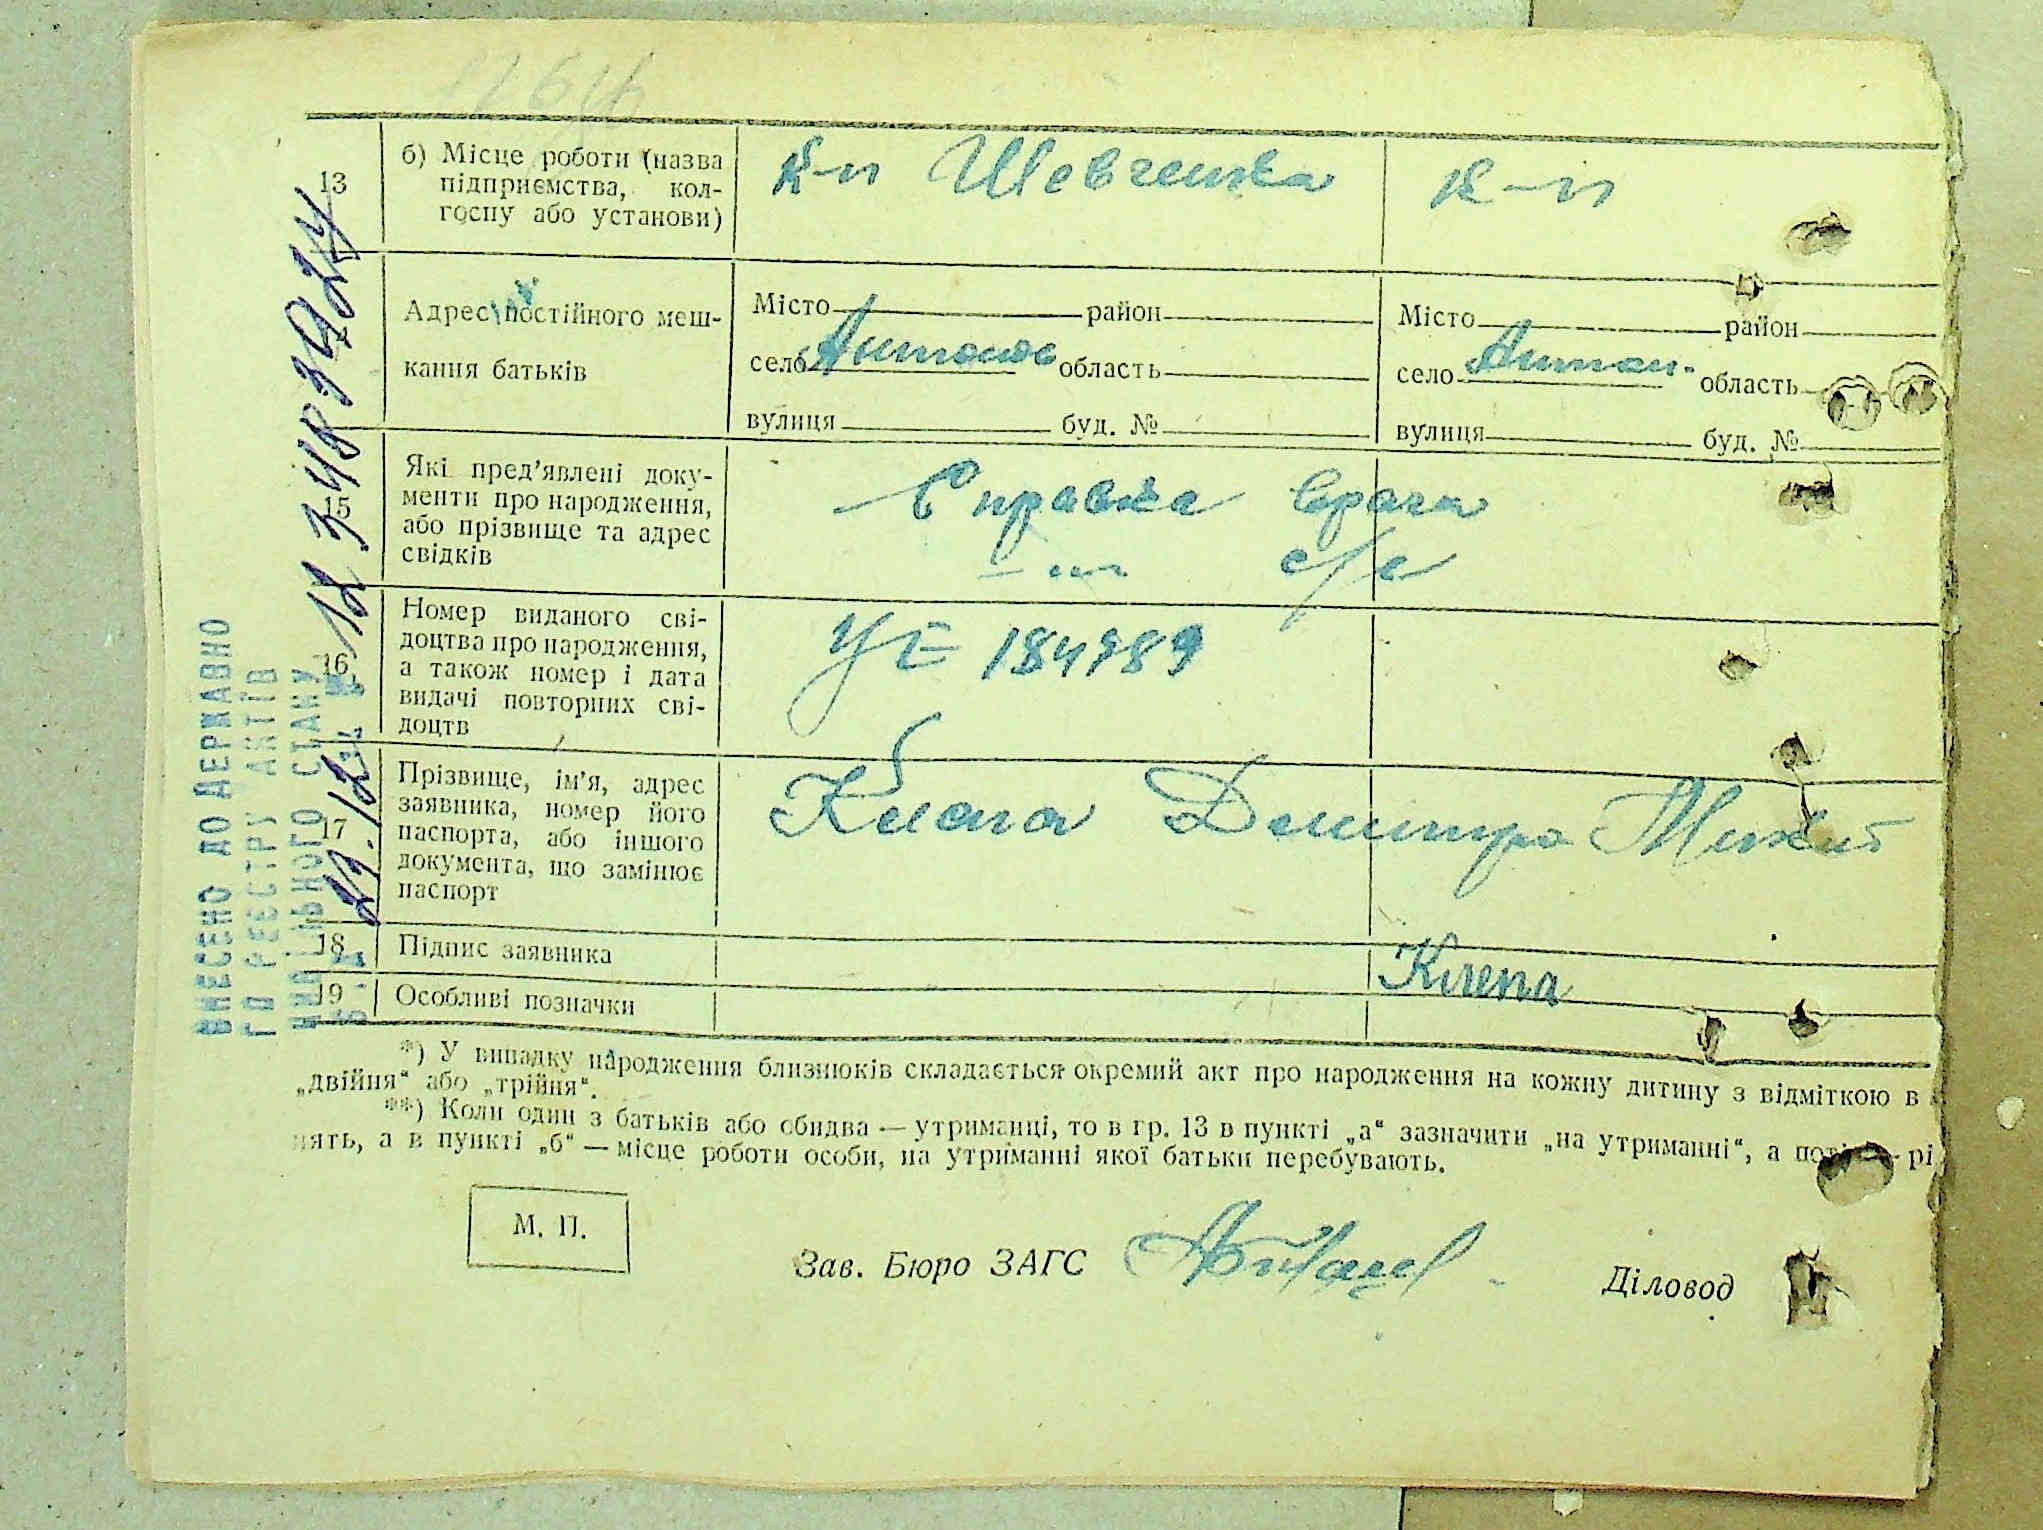 13
б) Місце роботи (назва
підприємства, кол-
госпу або установи)
к-п Шевченка
к-п
Адрес постійного меш-
кання батьків
Місто район
село Антонов область
вулиця буд. №
Місто район
село Антон. область
вулиця буд. №
15
Які пред’явлені доку-
менти про народження,
або прізвище та адрес
свідків
Справка врача
с/с
16
Номер виданого сві-
доцтва про народження,
а також номер і дата
видачі повторних сві-
доцтв
184989
17
Прізвище, ім’я, адрес
заявника, номер його
паспорта, або іншого
документа, що замінює
паспорт
Клепа Дмитро
18
Підпис заявника
Клепа
19
Особливі позначки
*) У випадку народження близнюків складається окремий акт про народження на кожну дитину з відміткою в
„двійня“ або „трійня“.
**) Коли один з батьків або обидва — утриманці, то в гр. 13 в пункті „а“ зазначити „на утриманні“, а
нять, а в пункті „б“ — місце роботи особи, на утриманні якої батьки перебувають.
М. П.
Зав. Бюро ЗАГС
Діловод
ВНЕСЕНО ДО ДЕРЖАВНО
ГО РЕЄСТРУ АКТІВ
ЦИВІЛЬНОГО СТАНУ